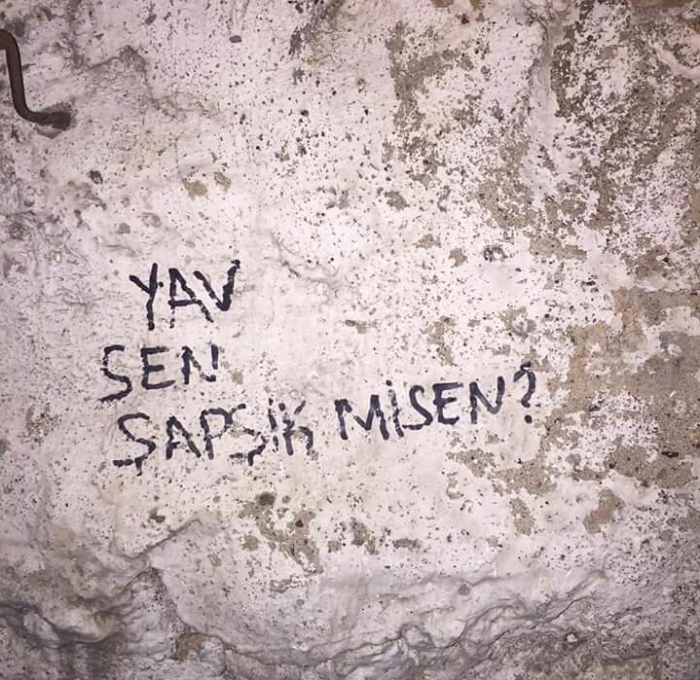 YAV
SEN
ŞAPŞİK MİSEN?